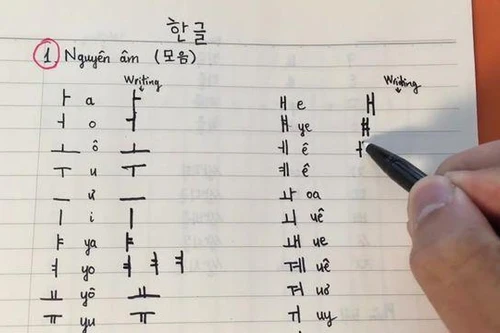 한글
1 Nguyên âm (모음)
Writing
ㅏ a ㅏ
ㅓ o ㅓ
ㅗ ô ㅗ
ㅜ u ㅜ
ㅡ ư ㅡ
ㅣ i ㅣ
ㅑ ya ㅑ
ㅕ yo ㅕ ㅕ ㅕ
ㅛ yô ㅛ
ㅠ yu ㅠ
Writing
ㅐ e ㅐ
ㅒ ye ㅒ
ㅔ ê ㅓ
ㅖ ê
ㅘ oa
ㅚ uê
ㅙ ue
ㅞ uê
ㅝ uơ
ㅟ uy